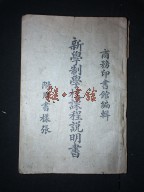 商務印書館編輯
新學制學校課程說明書
附書樣張